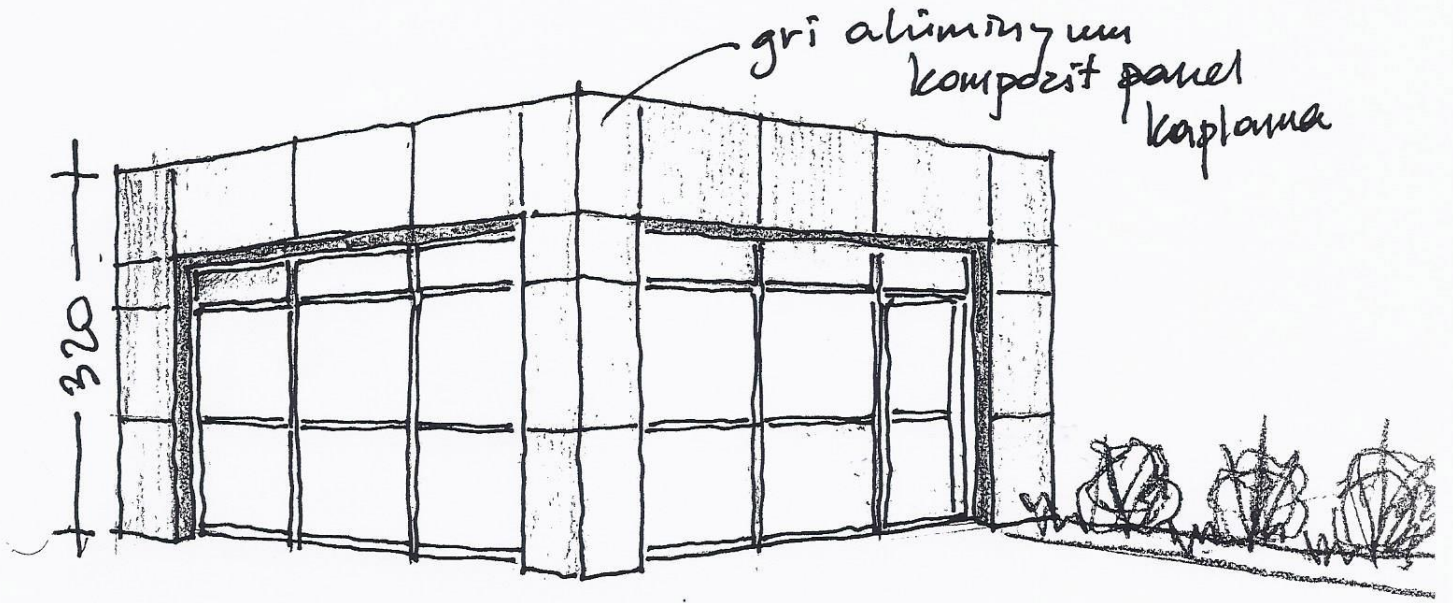 gri alüminyum
kompozit panel
kaplama
320